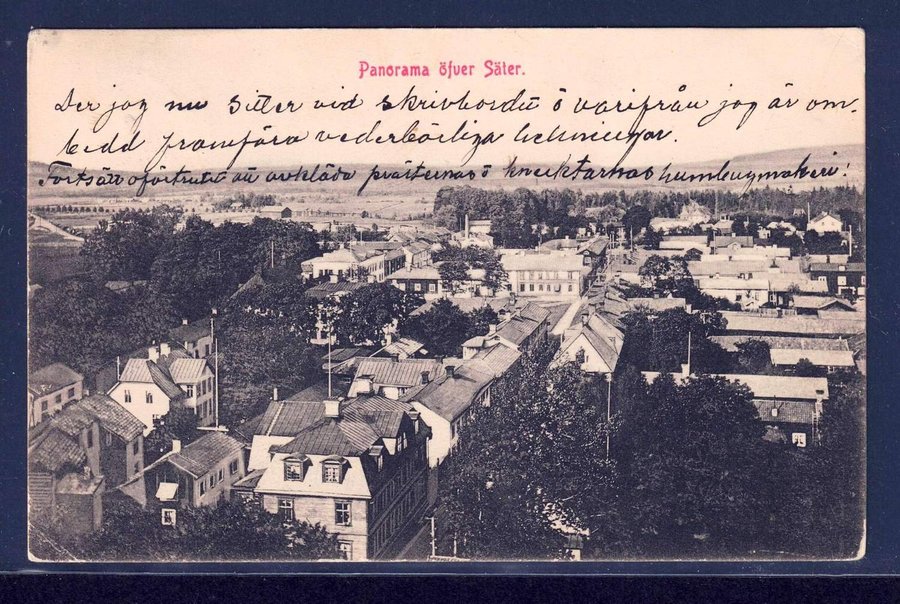 Panorama öfver Säter.
Der jag nu sitter vid skrivbordet ö varifrån jag är om-
bedd framföra vederbörliga helsningar.
Fortsätt oförtrutet att avkläda prästernas ö knecktarnas humbugmakeri!